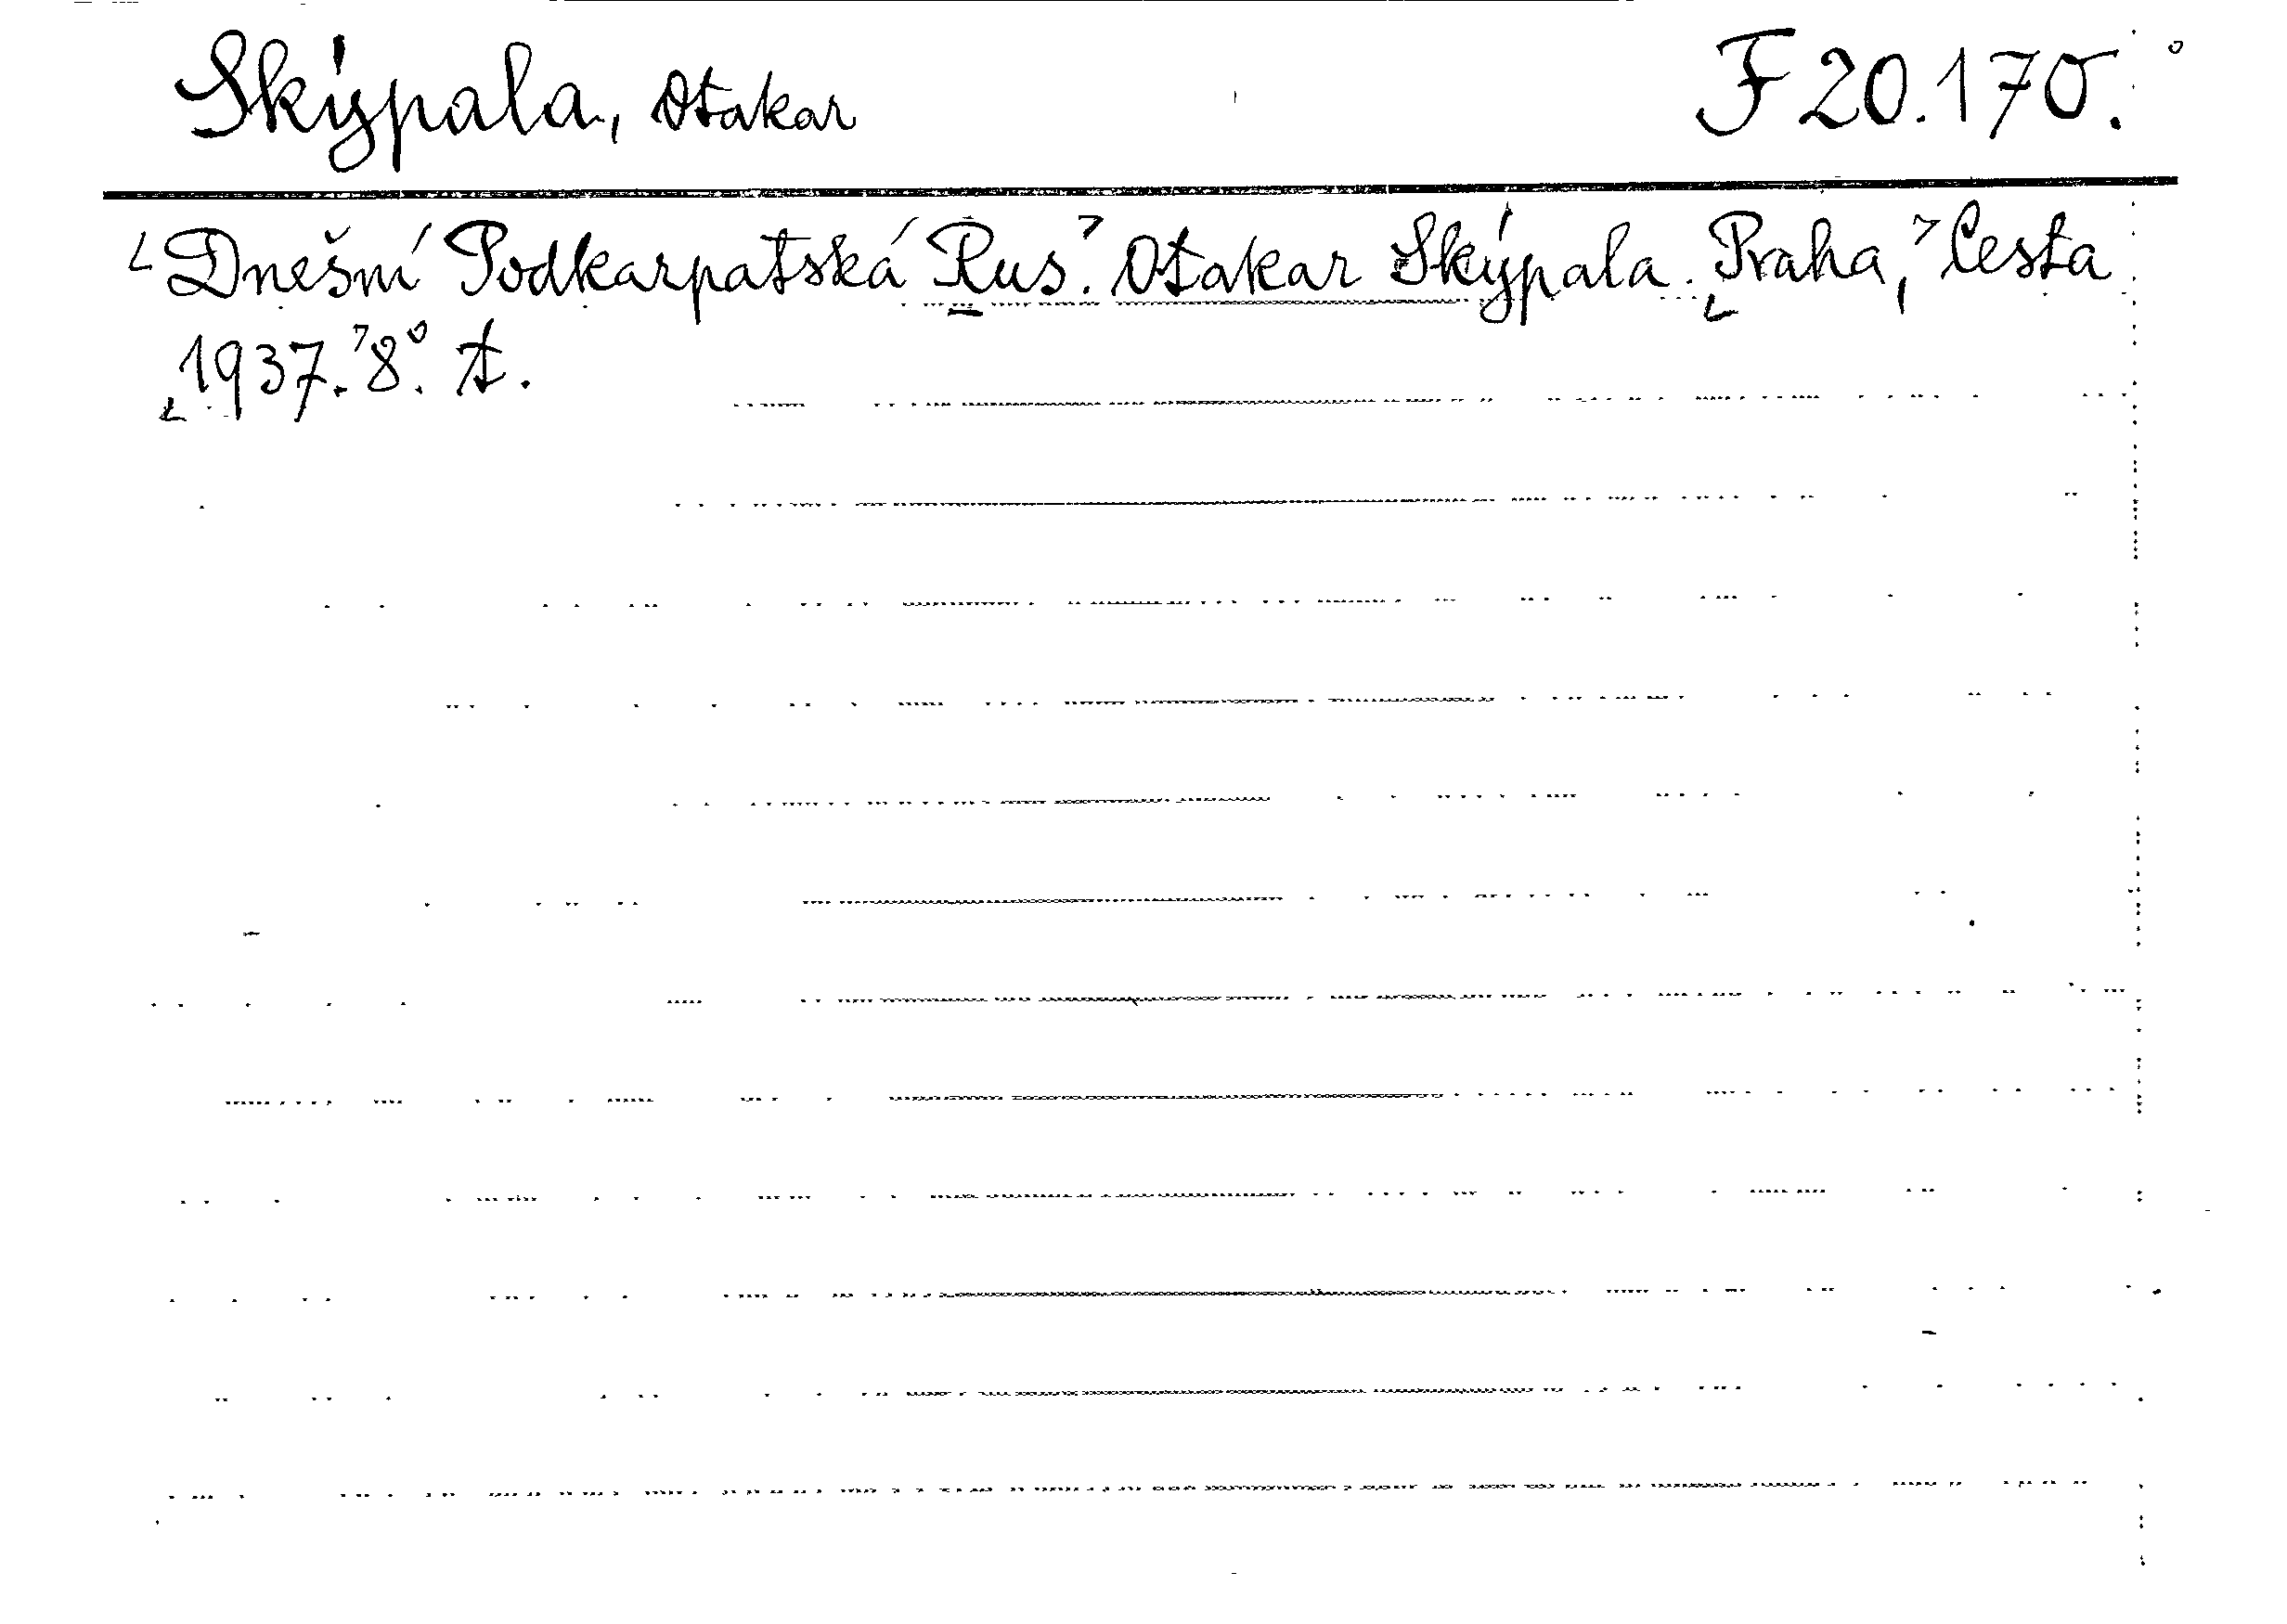 Skýpala, Otakar F 20.170.
Dnešní Podkarpatská Rus. Otakar Skýpala. Praha, Cesta
1937. 8°. A.